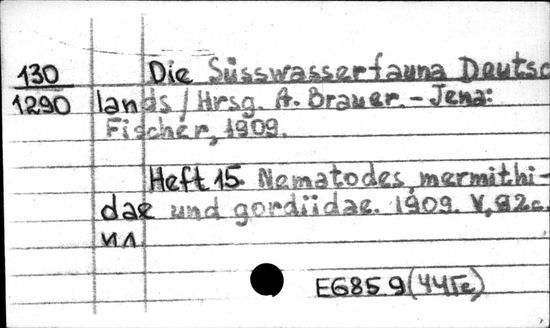 130 Die Süsswasserfauna Deutsc
1290 lands / Hrsg. A. Brauer. – Jena:
Fischer, 1909.
Heft 15. Nematodes, mermithi-
dae und gordiidae. 1909. V, 92 с.
ил.
E6859 (44Ге)